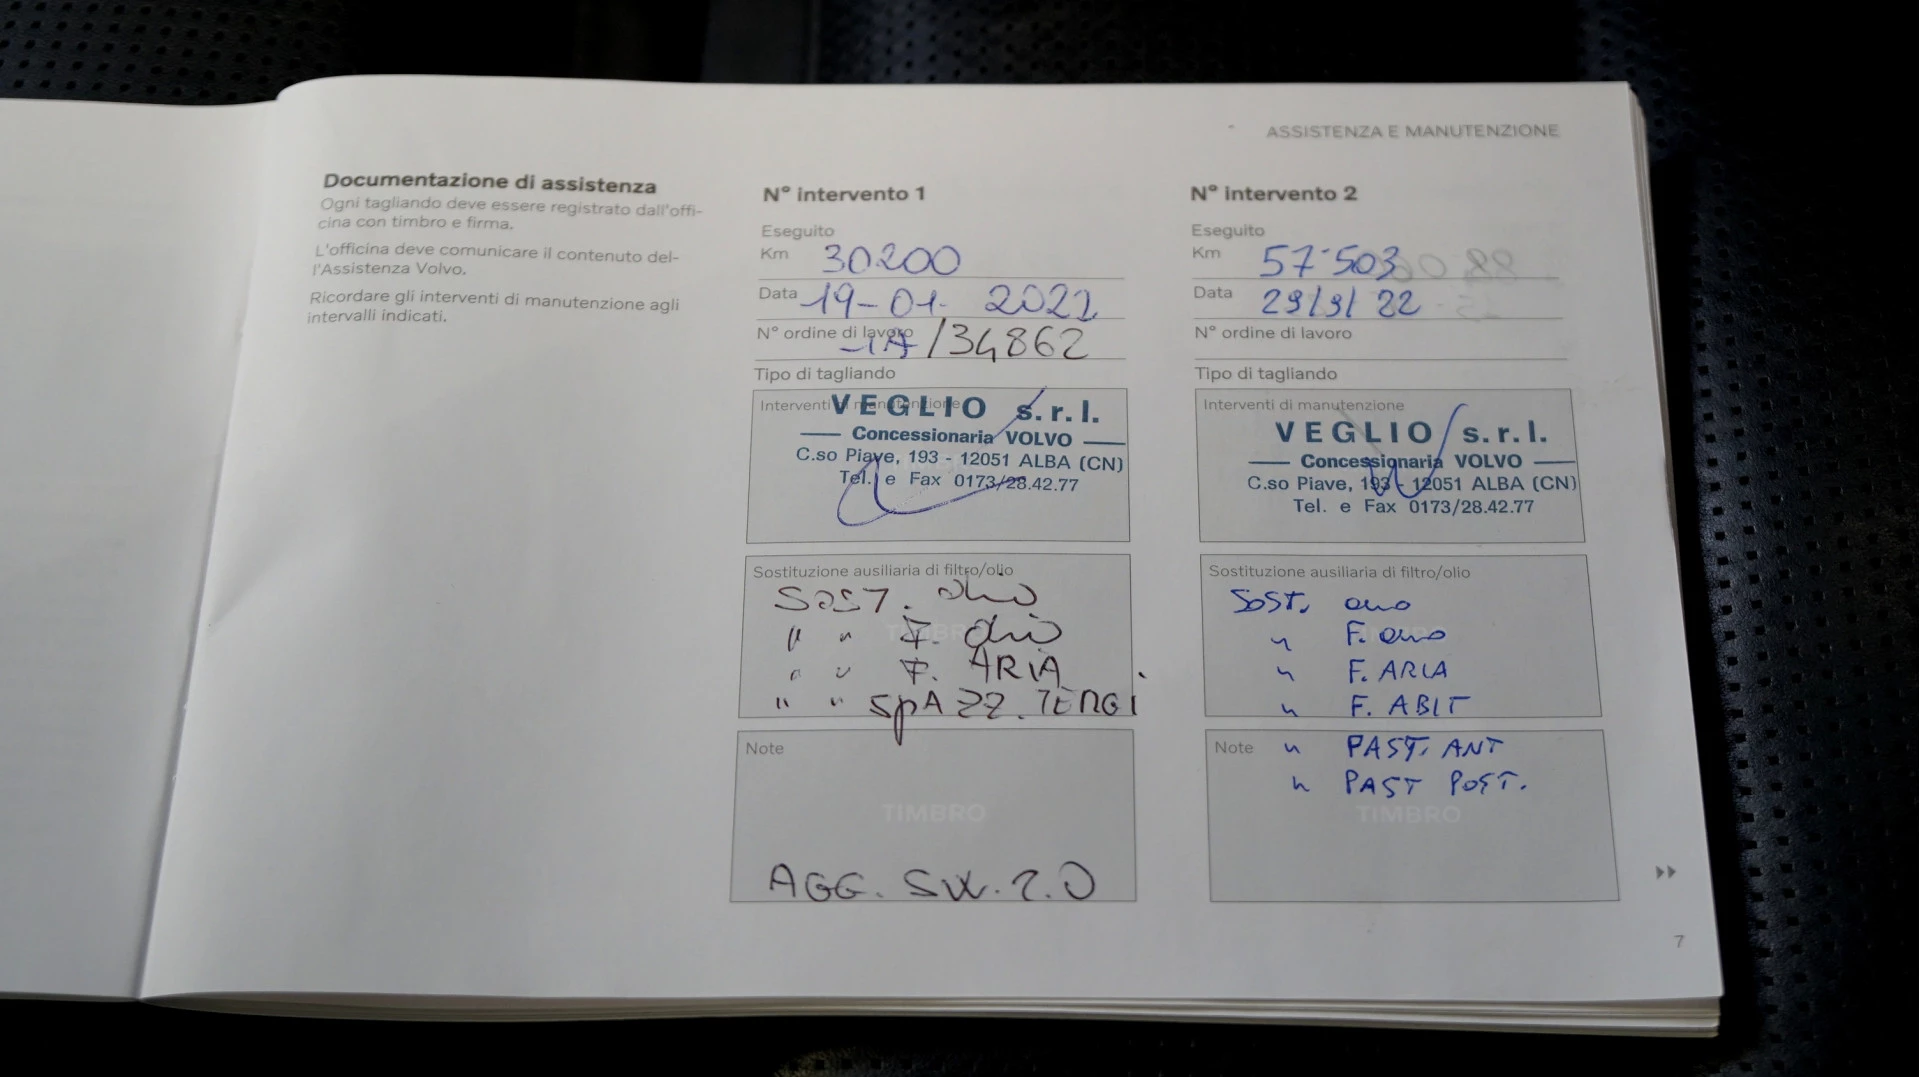 ASSISTENZA E MANUTENZIONE
Documentazione di assistenza
Ogni tagliando deve essere registrato dall'offi-
cina con timbro e firma.
L'officina deve comunicare il contenuto del-
l'Assistenza Volvo.
Ricordare gli interventi di manutenzione agli
intervalli indicati.
N° intervento 1
Eseguito
Km 30200
Data 19-01-2021
N° ordine di lavoro /34862
Tipo di tagliando
Interventi di manutenzione
VEGLIO s.r.l.
Concessionaria VOLVO
C.so Piave, 193 - 12051 ALBA (CN)
Tel. e Fax 0173/28.42.77
Sostituzione ausiliaria di filtro/olio
SOST. olio
" " F. olio
" " F. ARIA
" " SPAZZ. TERGI
Note
TIMBRO
AGG. SW. 2.0
N° intervento 2
Eseguito
Km 57·503
Data 29/9/22
N° ordine di lavoro
Tipo di tagliando
Interventi di manutenzione
VEGLIO s.r.l.
Concessionaria VOLVO
C.so Piave, 193 - 12051 ALBA (CN)
Tel. e Fax 0173/28.42.77
Sostituzione ausiliaria di filtro/olio
SOST. OLIO
" F. OLIO
" F. ARIA
" F. ABIT
Note " PAST. ANT
" PAST POST.
TIMBRO
7